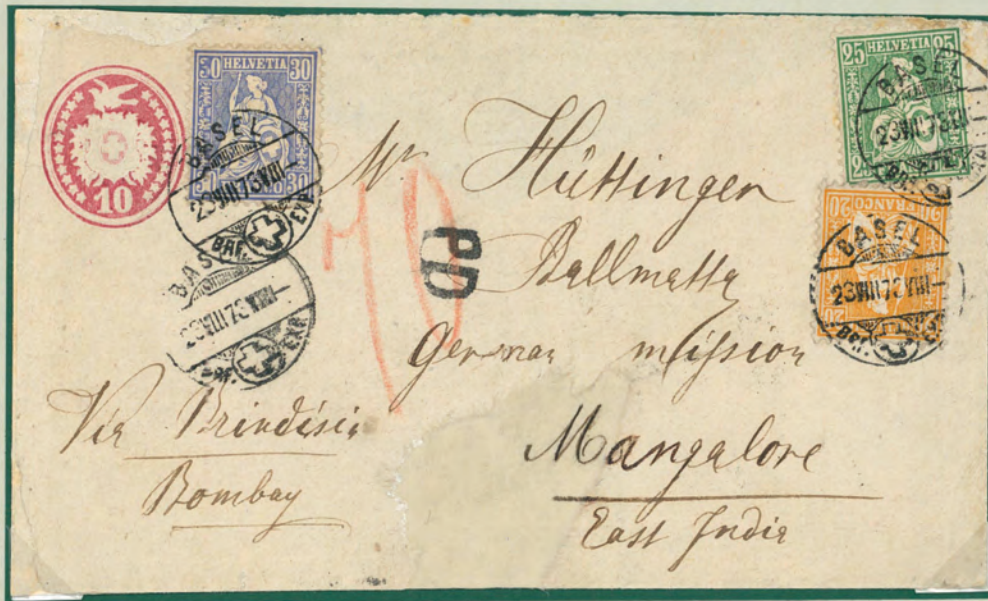 10
30 HELVETIA 30
30 30
BASEL
23VIII73VIII—
BRF. EXP.
BASEL
23VIII73VIII—
BRF. EXP.
25 HELVETIA 25
25
BASEL
23VIII73VIII—
BRF. EXP.
20 FRANCO 20
20
BASEL
23VIII73VIII—
BRF. EXP.
PD
70
Mr Hüttinger
Ballmatta
German mission
Mangalore
East India
Via Brindisia
Bombay